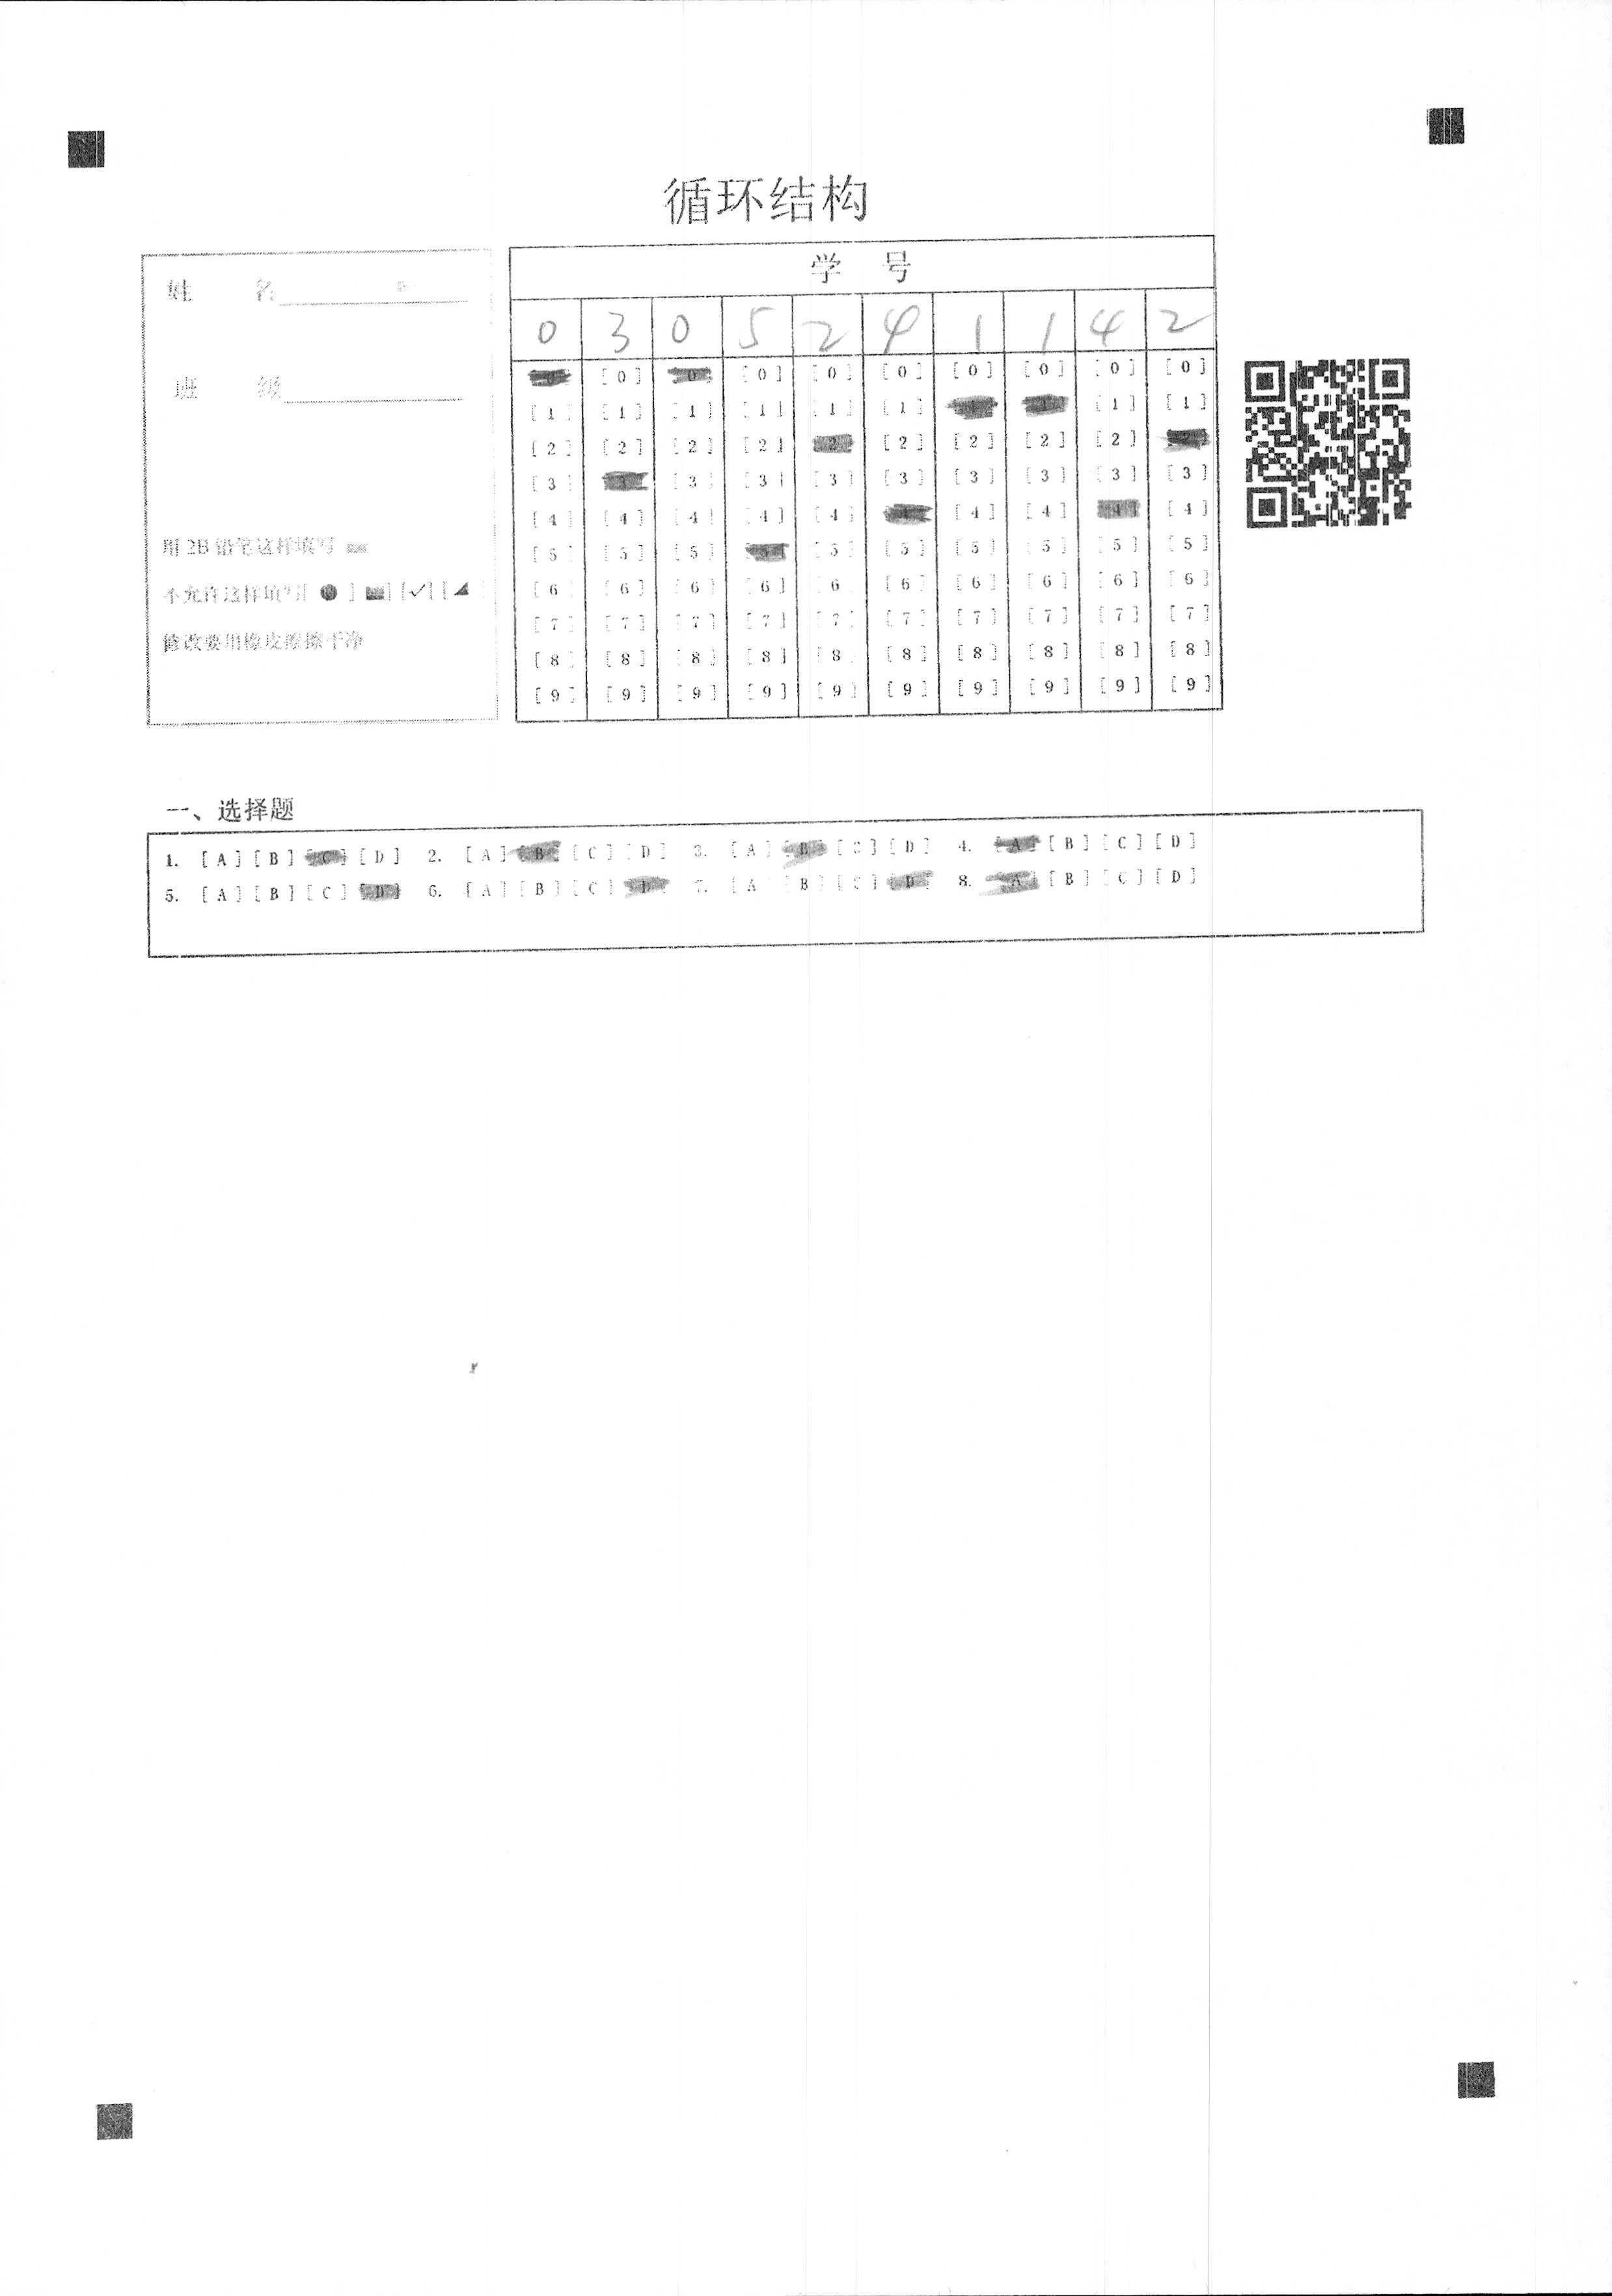 循环结构
姓 名
班 级
用2B铅笔这样填写
不允许这样填写[ ● ] [ ] [✓] [◢
修改要用橡皮擦擦干净
学 号
0 3 0 5 2 4 1 1 4 2
[0] [0] [0] [0] [0] [0] [0] [0] [0] [0]
[1] [1] [1] [1] [1] [1] [1] [1] [1] [1]
[2] [2] [2] [2] [2] [2] [2] [2] [2] [2]
[3] [3] [3] [3] [3] [3] [3] [3] [3] [3]
[4] [4] [4] [4] [4] [4] [4] [4] [4] [4]
[5] [5] [5] [5] [5] [5] [5] [5] [5] [5]
[6] [6] [6] [6] [6] [6] [6] [6] [6] [6]
[7] [7] [7] [7] [7] [7] [7] [7] [7] [7]
[8] [8] [8] [8] [8] [8] [8] [8] [8] [8]
[9] [9] [9] [9] [9] [9] [9] [9] [9] [9]
一、选择题
1. [A] [B] [C] [D] 2. [A] [B] [C] [D] 3. [A] [B] [C] [D] 4. [A] [B] [C] [D]
5. [A] [B] [C] [D] 6. [A] [B] [C] [D] 7. [A] [B] [C] [D] 8. [A] [B] [C] [D]